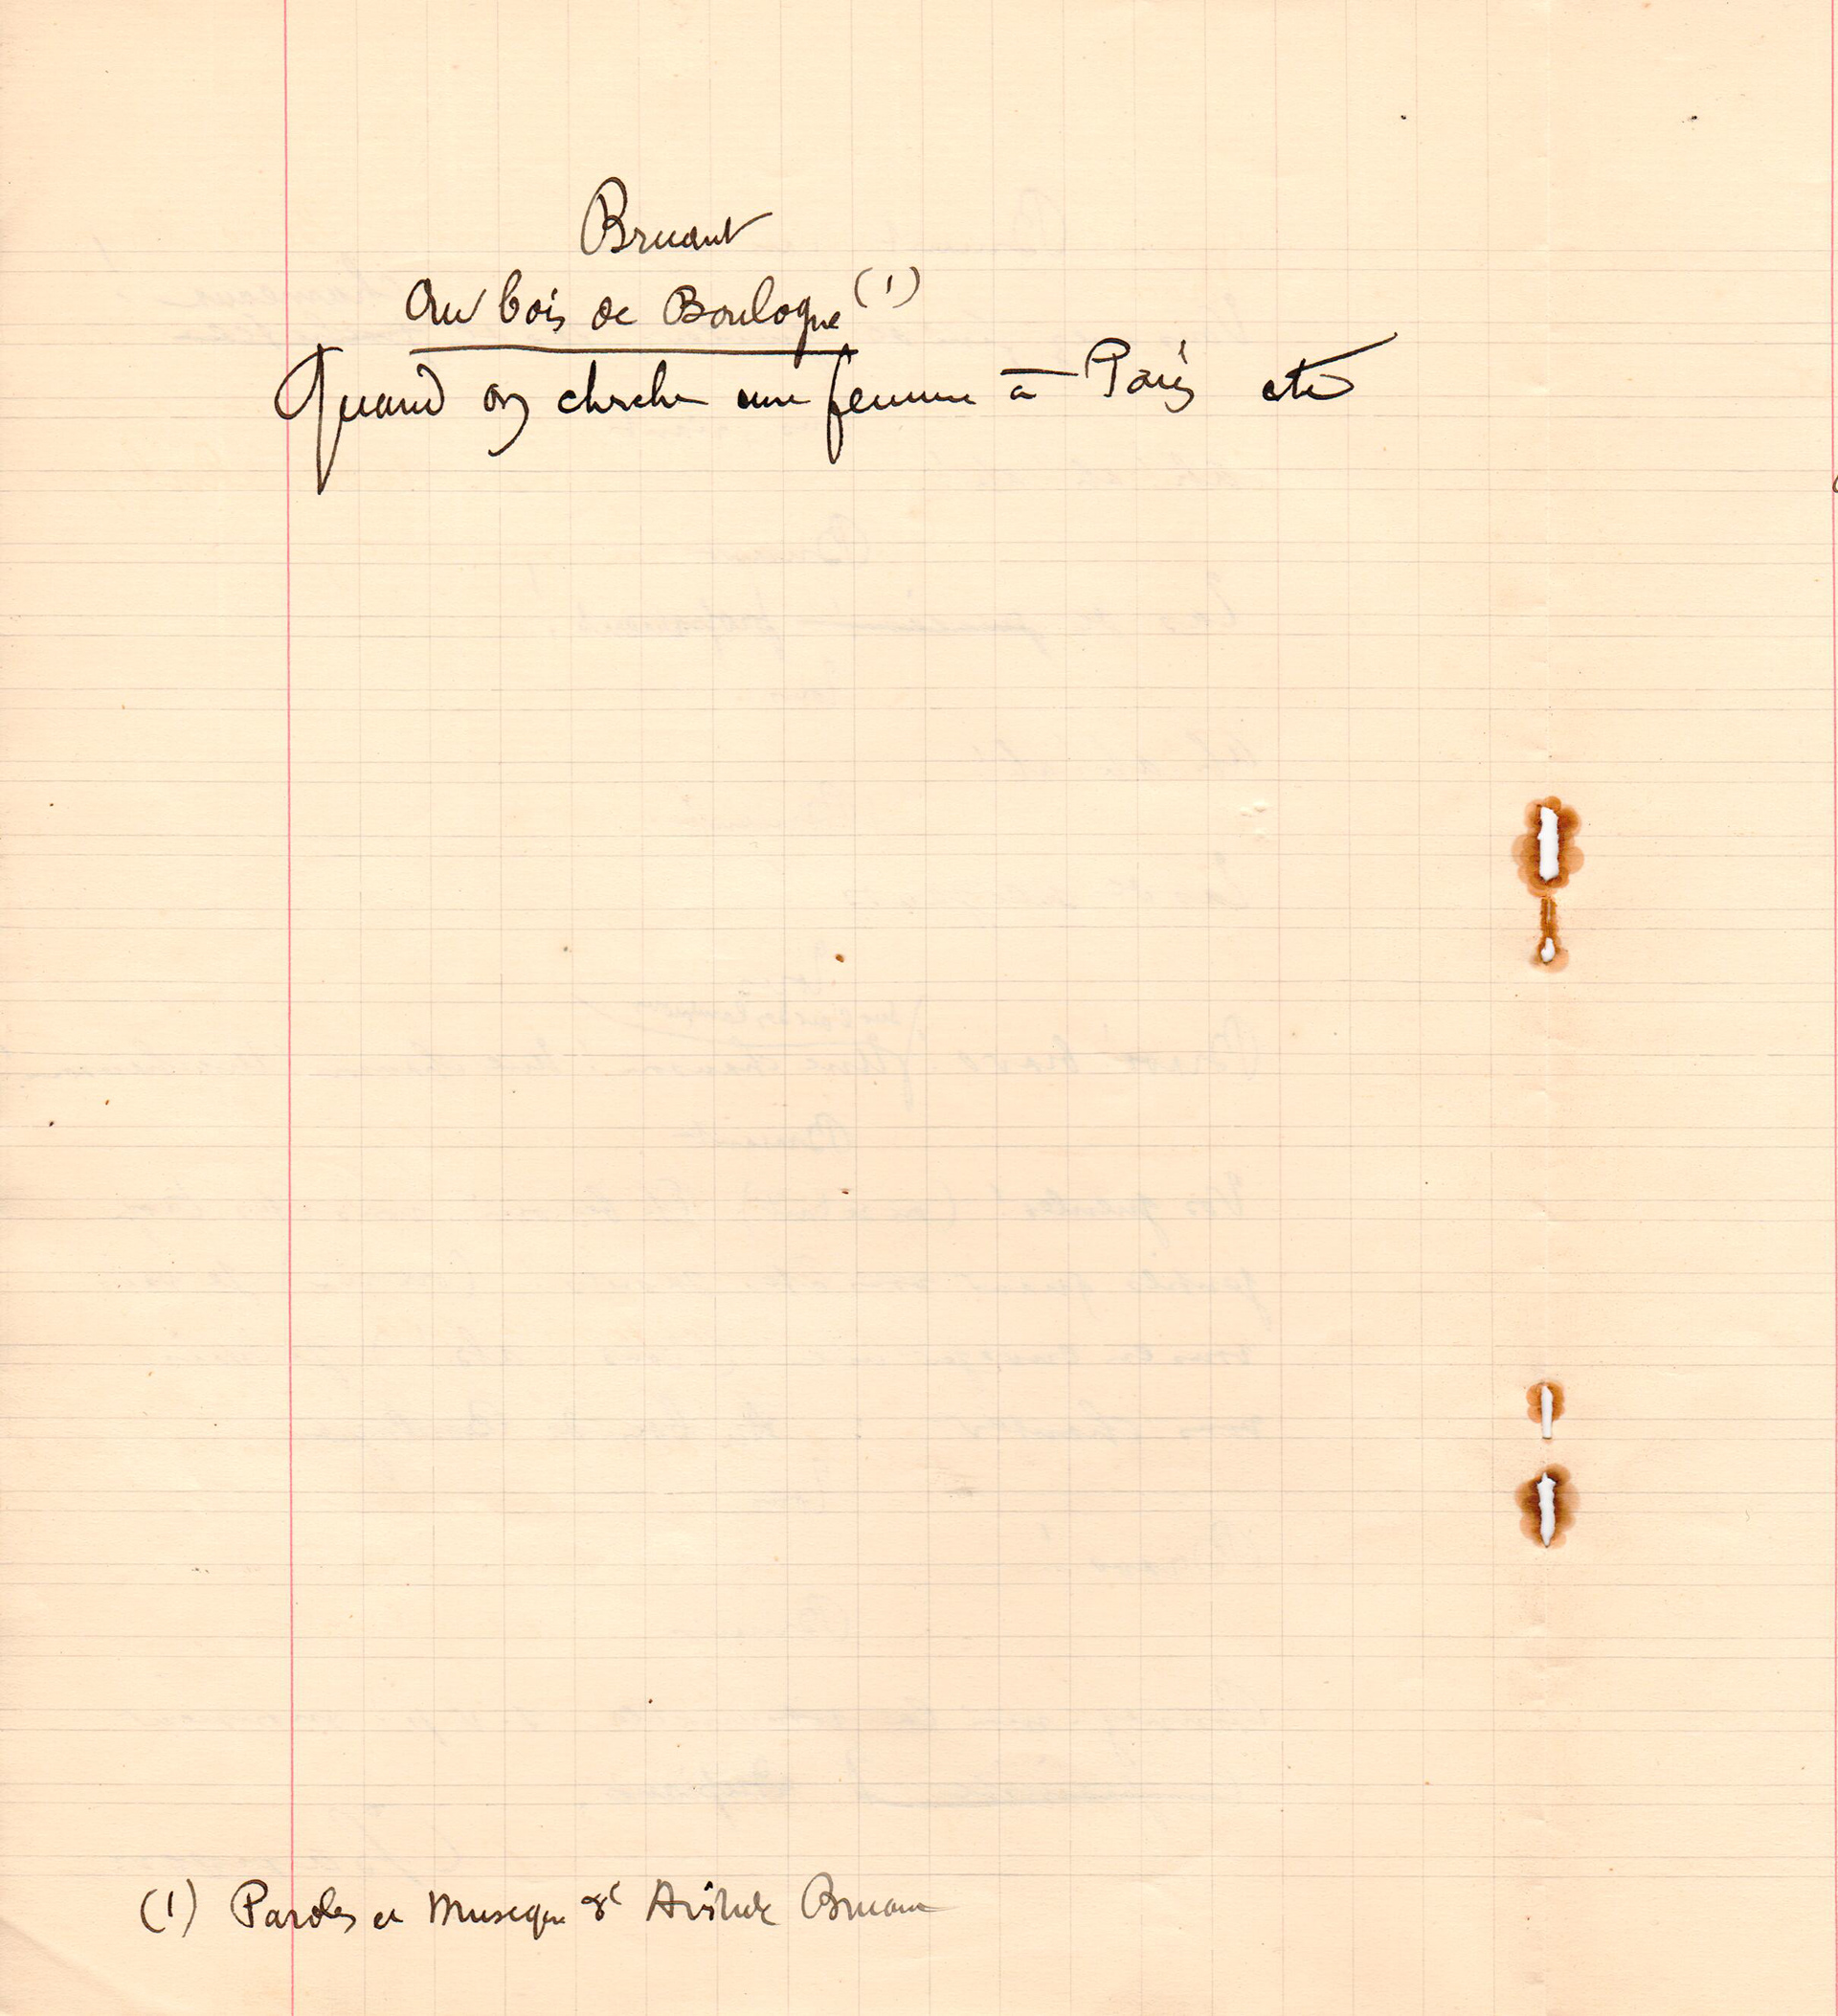 Bruant
Au bois de Boulogne (1)
Quand on cherche une femme à Paris etc
(1) Paroles et Musique d' Aristide Bruant